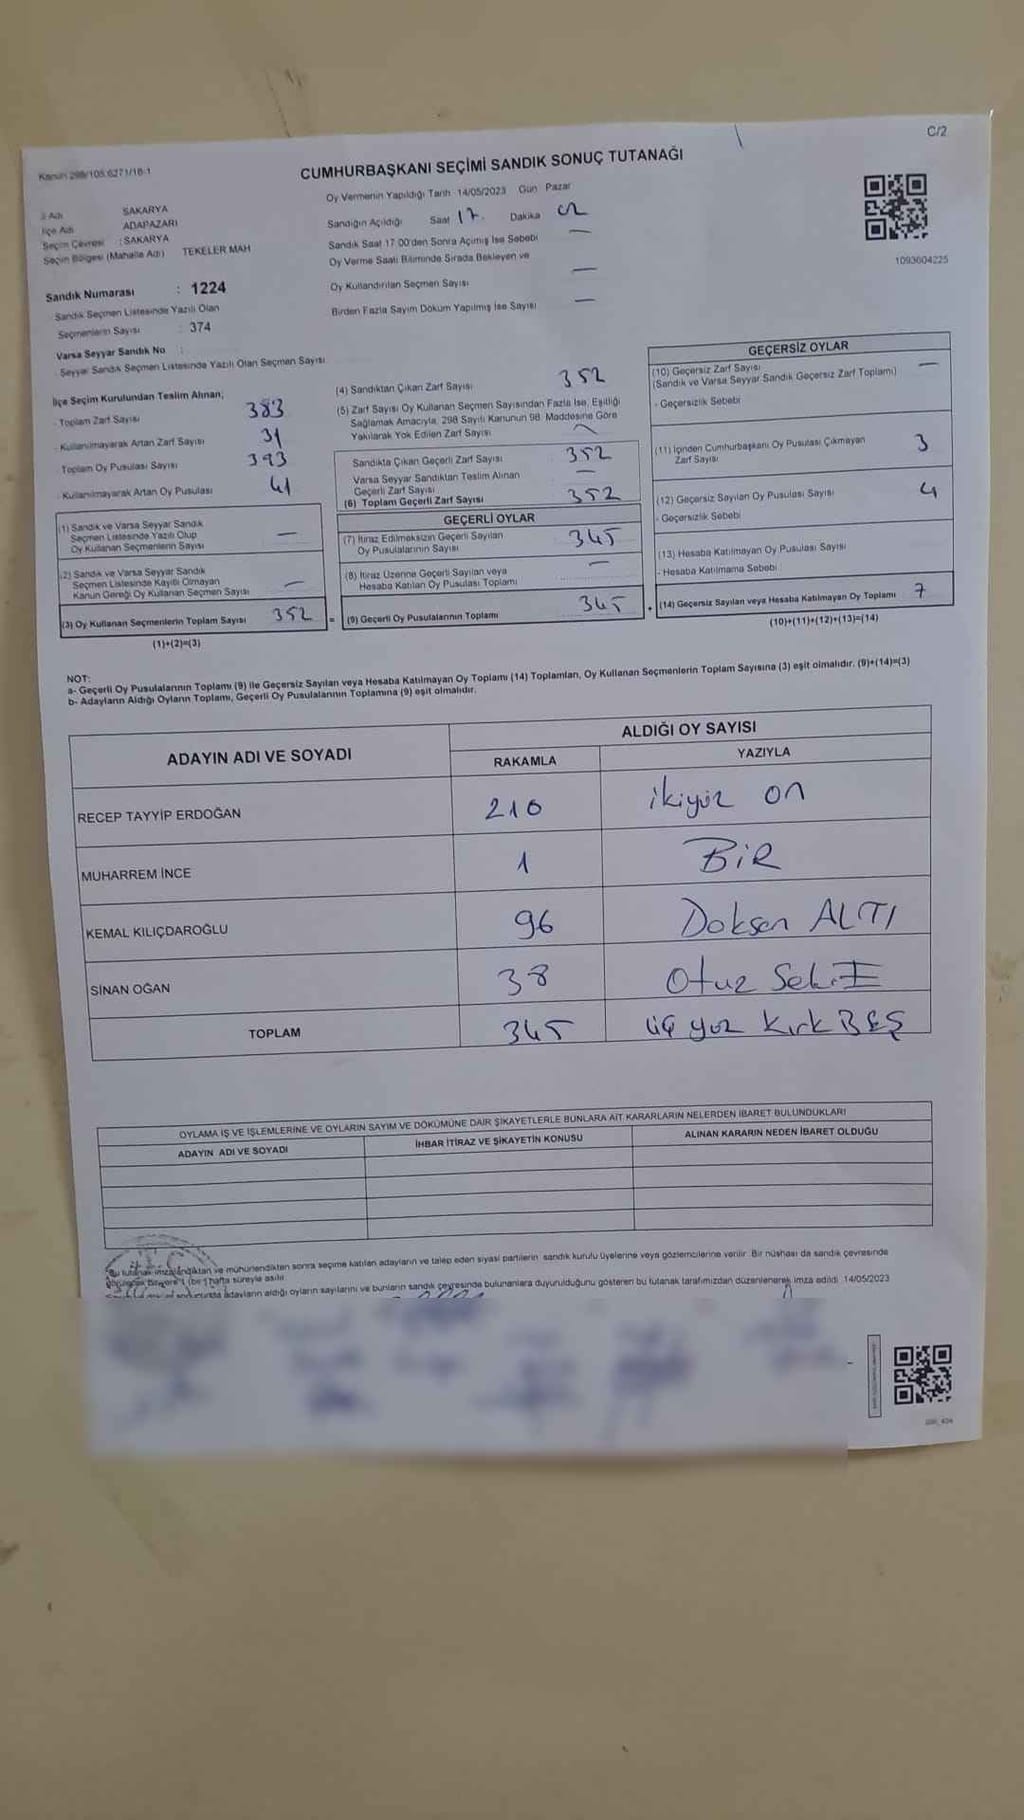 C/2
Kanun 298/105,6271/18-1
CUMHURBAŞKANI SEÇİMİ SANDIK SONUÇ TUTANAĞI
Oy Vermenin Yapıldığı Tarih 14/05/2023 Gün Pazar
İl Adı SAKARYA
İlçe Adı ADAPAZARI
Seçim Çevresi : SAKARYA
Seçim Bölgesi (Mahalle Adı) TEKELER MAH
Sandığın Açıldığı Saat 17. Dakika 02
Sandık Saat 17.00'den Sonra Açımış İse Sebebi —
Oy Verme Saati Bitiminde Sırada Bekleyen ve
Oy Kullandırılan Seçmen Sayısı —
Birden Fazla Sayım Döküm Yapılmış İse Sayısı —
1093604225
Sandık Numarası : 1224
Sandık Seçmen Listesinde Yazılı Olan
Seçmenlerin Sayısı : 374
Varsa Seyyar Sandık No :
Seyyar Sandık Seçmen Listesinde Yazılı Olan Seçmen Sayısı
İlçe Seçim Kurulundan Teslim Alınan;
Toplam Zarf Sayısı 383
Kullanılmayarak Artan Zarf Sayısı 31
Toplam Oy Pusulası Sayısı 393
Kullanılmayarak Artan Oy Pusulası 41
(1) Sandık ve Varsa Seyyar Sandık
Seçmen Listesinde Yazılı Olup
Oy Kullanan Seçmenlerin Sayısı —
(2) Sandık ve Varsa Seyyar Sandık
Seçmen Listesinde Kayıtlı Olmayan
Kanun Gereği Oy Kullanan Seçmen Sayısı —
(3) Oy Kullanan Seçmenlerin Toplam Sayısı 352
(1)+(2)=(3)
(4) Sandıktan Çıkan Zarf Sayısı 352
(5) Zarf Sayısı Oy Kullanan Seçmen Sayısından Fazla İse, Eşitliği
Sağlamak Amacıyla, 298 Sayılı Kanunun 98. Maddesine Göre
Yakılarak Yok Edilen Zarf Sayısı
Sandıkta Çıkan Geçerli Zarf Sayısı 352
Varsa Seyyar Sandıktan Teslim Alınan
Geçerli Zarf Sayısı —
(6) Toplam Geçerli Zarf Sayısı 352
GEÇERLİ OYLAR
(7) İtiraz Edilmeksizin Geçerli Sayılan
Oy Pusulalarının Sayısı 345
(8) İtiraz Üzerine Geçerli Sayılan veya
Hesaba Katılan Oy Pusulası Toplamı —
= (9) Geçerli Oy Pusulalarının Toplamı 345
GEÇERSİZ OYLAR
(10) Geçersiz Zarf Sayısı
(Sandık ve Varsa Seyyar Sandık Geçersiz Zarf Toplamı) —
- Geçersizlik Sebebi
(11) İçinden Cumhurbaşkanı Oy Pusulası Çıkmayan
Zarf Sayısı 3
(12) Geçersiz Sayılan Oy Pusulası Sayısı 4
- Geçersizlik Sebebi
(13) Hesaba Katılmayan Oy Pusulası Sayısı
- Hesaba Katılmama Sebebi
+ (14) Geçersiz Sayılan veya Hesaba Katılmayan Oy Toplamı 7
(10)+(11)+(12)+(13)=(14)
NOT:
a- Geçerli Oy Pusulalarının Toplamı (9) ile Geçersiz Sayılan veya Hesaba Katılmayan Oy Toplamı (14) Toplamları, Oy Kullanan Seçmenlerin Toplam Sayısına (3) eşit olmalıdır. (9)+(14)=(3)
b- Adayların Aldığı Oyların Toplamı, Geçerli Oy Pusulalarının Toplamına (9) eşit olmalıdır.
ADAYIN ADI VE SOYADI ALDIĞI OY SAYISI
RAKAMLA YAZIYLA
RECEP TAYYİP ERDOĞAN 210 ikiyüz on
MUHARREM İNCE 1 BİR
KEMAL KILIÇDAROĞLU 96 Doksan ALTI
SİNAN OĞAN 38 Otuz Sekiz
TOPLAM 345 üç yüz Kırk BEŞ
OYLAMA İŞ VE İŞLEMLERİNE VE OYLARIN SAYIM VE DÖKÜMÜNE DAİR ŞİKAYETLERLE BUNLARA AİT KARARLARIN NELERDEN İBARET BULUNDUKLARI
ADAYIN ADI VE SOYADI İHBAR İTİRAZ VE ŞİKAYETİN KONUSU ALINAN KARARIN NEDEN İBARET OLDUĞU
Bu tutanak imzalandıktan ve mühürlendikten sonra seçime katılan adayların ve talep eden siyasi partilerin sandık kurulu üyelerine veya gözlemcilerine verilir. Bir nüshası da sandık çevresinde
görülecek bir yere 1 (bir) hafta süreyle asılır.
sonucunda adayların aldığı oyların sayılarını ve bunların sandık çevresinde bulunanlara duyurulduğunu gösteren bu tutanak tarafımızdan düzenlenerek imza edildi. 14/05/2023